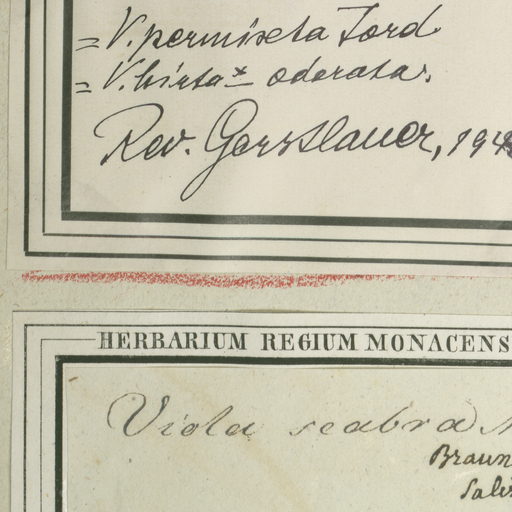 = V. permixta Jord
= V. hirta × odorata.
Rev. Gerstlauer, 194
HERBARIUM REGIUM MONACENS
Viola scabra
Braun
Salis